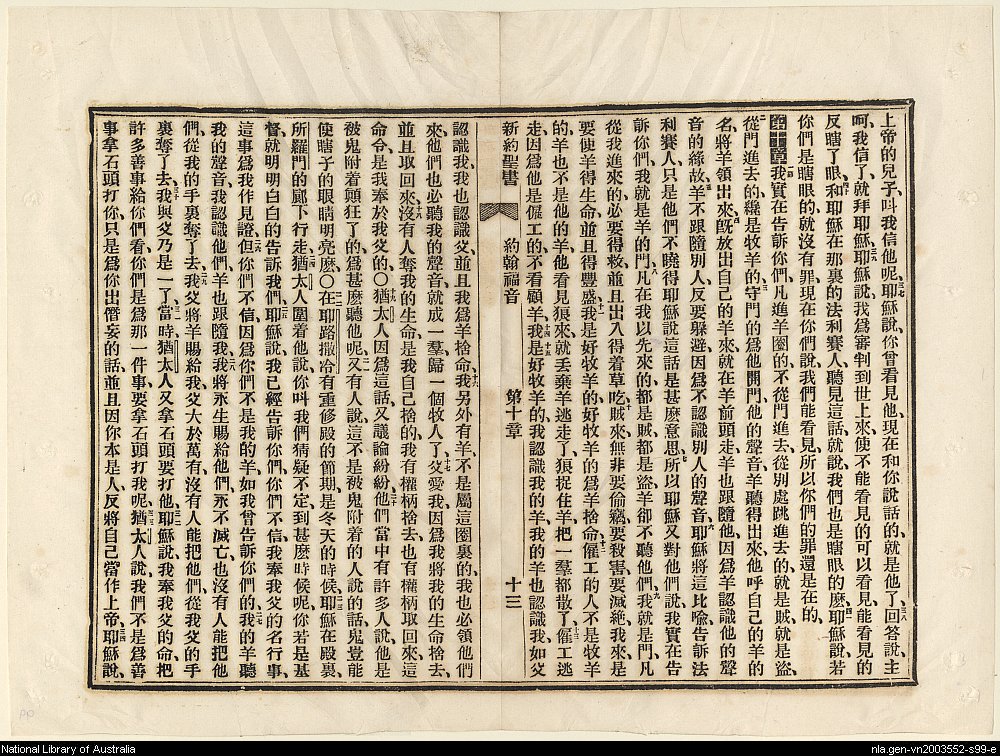 上帝的兒子、叫我信他呢、耶穌說、你曾看見他、現在和你說話的就是他了、回答說、主
呵、我信了、就拜耶穌、耶穌說、我爲審判到世上來、使不能看見的可以看見、能看見的
反瞎了眼、和耶穌在那裏的法利賽人、聽見這話、就說、我們也是瞎眼的麽、耶穌說、若
你們是瞎眼的、就沒有罪、現在你們說我們能看見、所以你們的罪還是在的、
第十章 我實在告訴你們、凡進羊圈的、不從門進去、從別處跳進去的、就是賊、就是盜、
從門進去的、纔是牧羊的、守門的爲他開門、他的聲音羊聽得出來、他呼自己的羊的
名、將羊領出來、既放出自己的羊來、就在羊前頭走、羊也跟隨他、因爲羊認識他的聲
音的緣故、羊不跟隨別人、反要躲避、因爲不認識別人的聲音、耶穌將這比喻告訴法
利賽人、只是他們不曉得耶穌說這話是甚麽意思、所以耶穌又對他們說、我實在告
訴你們、我就是羊的門、凡在我以先來的、都是賊、都是盜、羊卻不聽他們、我就是門、凡
從我進來的、必要得救、並且出入得着草吃、賊來、無非要偷竊、要殺害、要滅絕、我來、是
要使羊得生命、並且得豐盛、我是好牧羊的、好牧羊的爲羊捨命、僱工的人、不是牧羊
的、羊也不是他的羊、他看見狼來、就丟棄羊逃走了、狼捉住羊、把一羣都散了、僱工逃
走、因爲他是僱工的、不看顧羊、我是好牧羊的、我認識我的羊、我的羊也認識我、如父
新約聖書 約翰福音 第十章 十三
認識我、我也認識父、並且我爲羊捨命、我另外有羊、不是屬這圈裏的、我也必領他們
來、他們也必聽我的聲音、就成一羣、歸一個牧人了、父愛我、因爲我將我的生命捨去、
並且取回來、沒有人奪我的生命、是我自己捨的、我有權柄捨去、也有權柄取回來、這
命令是我奉於我父的、○猶太人因爲這話又議論紛紛、他們當中有許多人說、他是
被鬼附着、顛狂了的、爲甚麽聽他呢、又有人說、這不是被鬼附着的人說的話、鬼豈能
使瞎子的眼睛明亮麽、○在耶路撒冷有重修殿的節期、是冬天的時候、耶穌在殿裏、
所羅門的廊下行走、猶太人圍着他說、你叫我們猜疑不定到甚麽時候呢、你若是基
督、就明明白白的告訴我們、耶穌說、我已經告訴你們、你們不信、我奉我父的名行事、
這事爲我作見證、但你們不信、因爲你們不是我的羊、如我曾告訴你們的、我的羊聽
我的聲音、我認識他們、羊也跟隨我、我將永生賜給他們、永不滅亡、也沒有人能把他
們從我的手裏奪了去、我父將羊賜給我、父大於萬有、沒有人能把他們從我父的手
裏奪了去、我與父乃是一了、當時猶太人又拿石頭要打他、耶穌說、我奉我父的命、把
許多善事給你們看、你們是爲那一件事要拿石頭打我呢、猶太人說、我們不是爲善
事拿石頭打你、只是爲你出僭妄的話、並且因你本是人、反將自己當作上帝、耶穌說、
National Library of Australia
nla.gen-vn2003552-s99-e